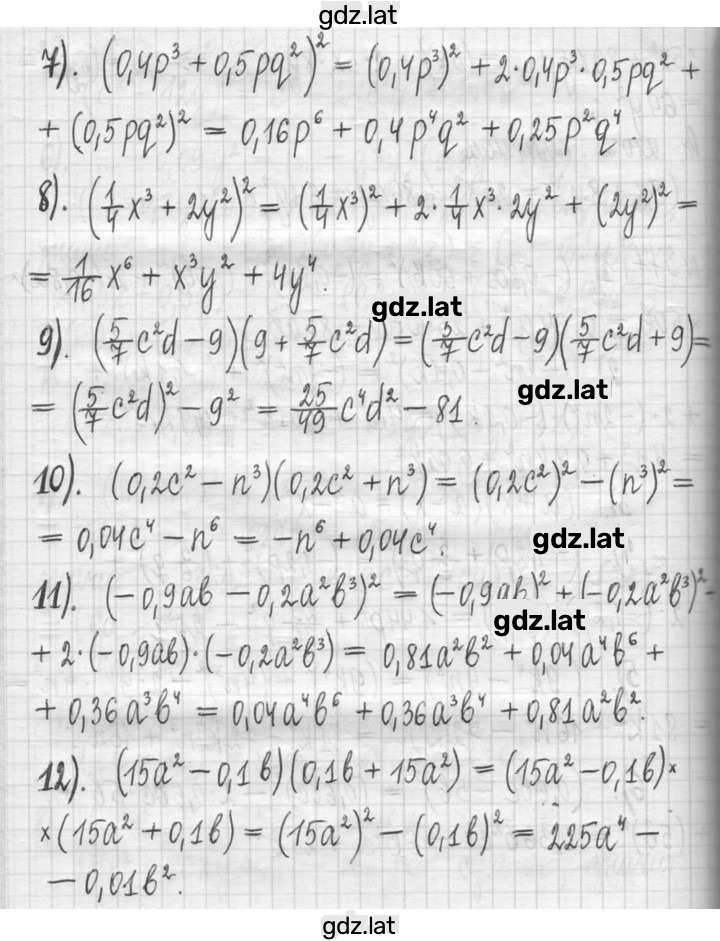 gdz.lat
7). (0,4p³ + 0,5pq²)² = (0,4p³)² + 2·0,4p³·0,5pq² +
+ (0,5pq²)² = 0,16p⁶ + 0,4p⁴q² + 0,25p²q⁴.
8). (1/4 x³ + 2y²)² = (1/4 x³)² + 2·1/4 x³·2y² + (2y²)² =
= 1/16 x⁶ + x³y² + 4y⁴.
gdz.lat
9). (5/7 c²d − 9)(9 + 5/7 c²d) = (5/7 c²d − 9)(5/7 c²d + 9) =
gdz.lat
= (5/7 c²d)² − 9² = 25/49 c⁴d² − 81.
10). (0,2c² − n³)(0,2c² + n³) = (0,2c²)² − (n³)² =
= 0,04c⁴ − n⁶ = −n⁶ + 0,04c⁴.
gdz.lat
11). (−0,9ab − 0,2a²b³)² = (−0,9ab)² + (−0,2a²b³)² +
gdz.lat
+ 2·(−0,9ab)·(−0,2a²b³) = 0,81a²b² + 0,04a⁴b⁶ +
+ 0,36a³b⁴ = 0,04a⁴b⁶ + 0,36a³b⁴ + 0,81a²b².
12). (15a² − 0,1b)(0,1b + 15a²) = (15a² − 0,1b)×
×(15a² + 0,1b) = (15a²)² − (0,1b)² = 225a⁴ −
− 0,01b².
gdz.lat